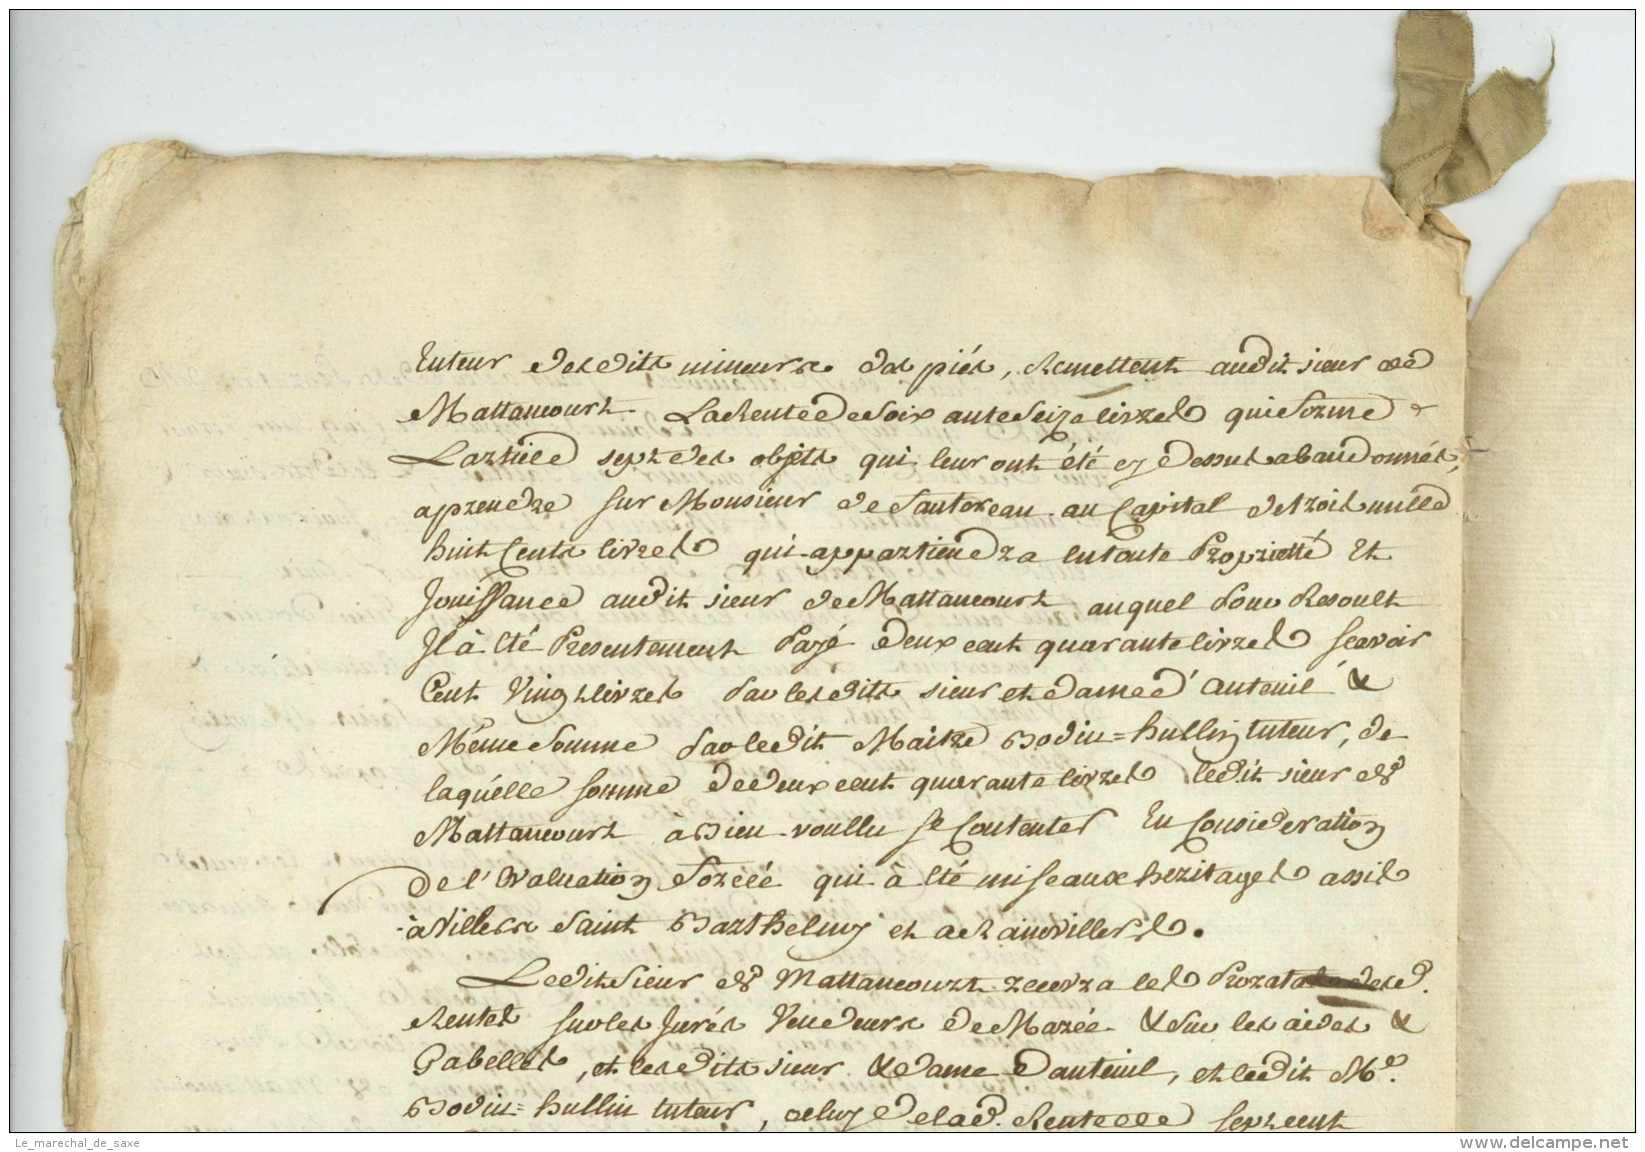 tuteur desdits mineurs des piés, Remettent audit sieur de
Mattancourt La Rente de soixante seize livres qui forme
Larticle sept des objets qui leur ont été cy dessus abandonnés,
aprendre sur Monsieur de Santoreau au Capital de trois mille
huit Cents livres qui appartiendra en toute Propriétté Et
Jouissance audit sieur de Mattancourt auquel pour Resoult
Il à Eté Presentement Payé deux cent quarante livres scavoir
Cent Vingt livres par lesdits sieur et dame d'auteuil &
Méme somme par ledit Maitre Bodin=hullin tuteur, de
laquélle somme de deux cent quarante livres ledit sieur de
Mattancourt à Bien voullu se Contenter En Consideration
De l'Evaluation forcéé qui à Eté mise aux heritages assis
à Villers Saint Barthelmy et a Rainvillers.
Ledit Sieur de Mattancourt recevra les Prorata desd.
Rentes sur les Jurés Vendeurs de Marée & sur les aides &
Gabelles, et lesdits sieur & dame Dauteuil, et ledit Me.
Bodin=hullin tuteur, celuy de lad. Rente de sept cent
Le_marechal_de_saxe
www.delcampe.net